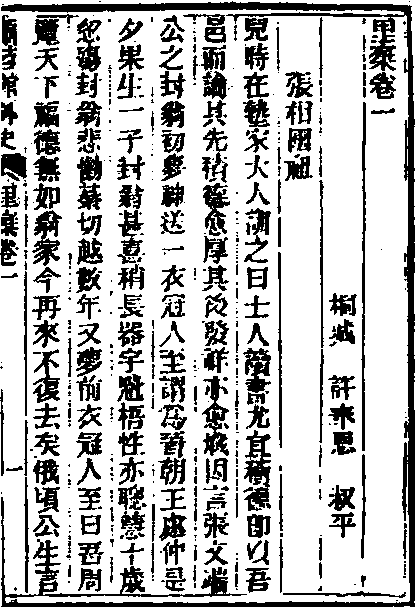 里乘卷一
桐城 許奉恩 叔平
張相國祖
兒時在塾家大人謂之曰士人讀書尤宜積德卽以吾
邑而論其先積德愈厚其後發祥亦愈熾因言張文端
公之封翁初夢神送一衣冠人至謂爲晉朝王處仲是
夕果生一子封翁甚喜稍長器宇魁梧性亦聰慧十歲
忽殤封翁悲慟綦切越數年又夢前衣冠人至曰吾周
覽天下福德無如翁家今再來不復去矣俄頃公生言
里乘卷一
一